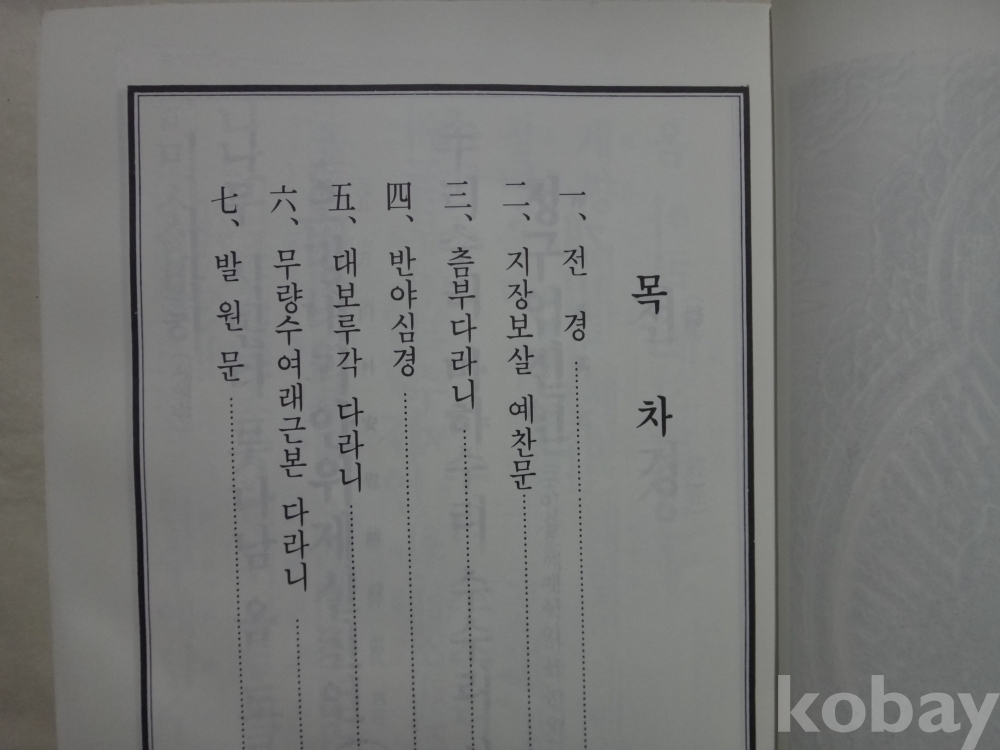 목 차
一、 전 경
二、 지장보살 예찬문
三、 츰부다라니
四、 반야심경
五、 대보루각 다라니
六、 무량수여래근본 다라니
七、 발 원 문
kobay